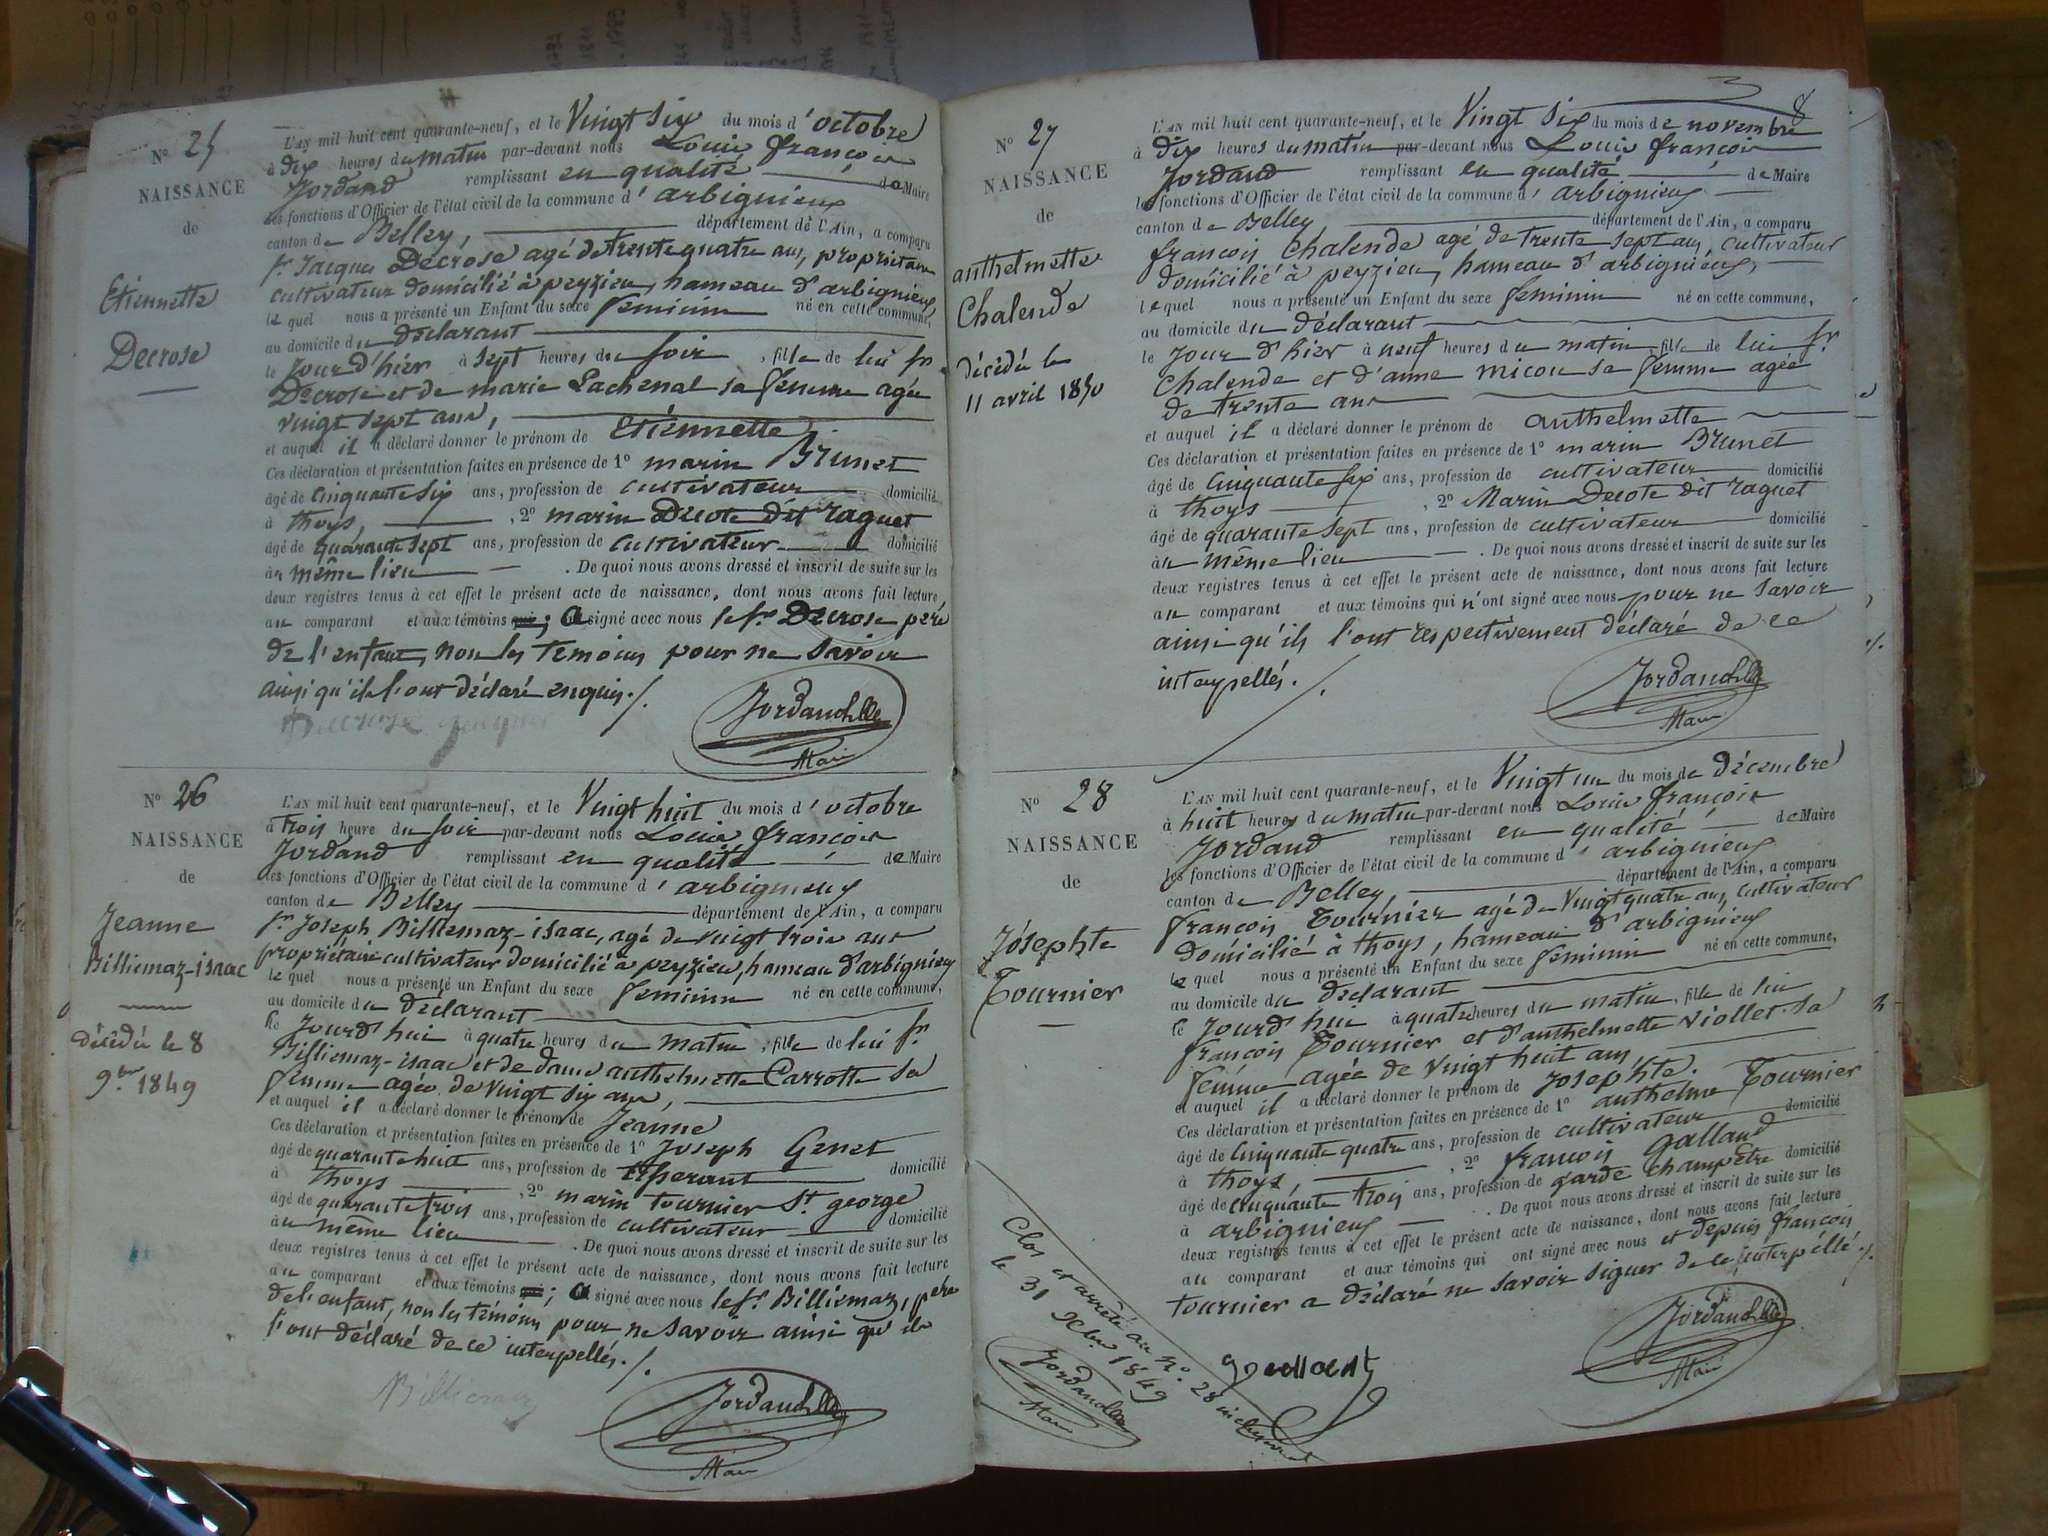 N° 25
NAISSANCE
de
Etiennette
Decrose
L'AN mil huit cent quarante-neuf, et le Vingt six du mois d'octobre
à dix heures du matin par-devant nous Louis françois
Jordand remplissant en qualité de Maire
les fonctions d'Officier de l'état civil de la commune d'arbignieux
canton de Belley, département de l'Ain, a comparu
sr Jacques Decrose agé de trente quatre ans, propriétaire
cultivateur domicilié à peyzieu, hameau d'arbignieux,
lequel nous a présenté un Enfant du sexe feminin né en cette commune,
au domicile du déclarant
le Jour d'hier à sept heures du soir, fille de lui sr
Decrose et de marie Lachenal sa femme agée
vingt sept ans,
et auquel il a déclaré donner le prénom de Etiennette
Ces déclaration et présentation faites en présence de 1° marin Brunet
âgé de cinquante six ans, profession de cultivateur domicilié
à thoys, , 2° marin Decote dit raguet
âgé de quarante sept ans, profession de cultivateur domicilié
au même lieu . De quoi nous avons dressé et inscrit de suite sur les
deux registres tenus à cet effet le présent acte de naissance, dont nous avons fait lecture
au comparant et aux témoins qui; a signé avec nous le sr Decrose père
de l'enfant, non les temoins pour ne savoir
ainsi qu'ils l'ont déclaré enquis./.
Decrose jacques
Jordand
Maire
N° 26
NAISSANCE
de
Jeanne
Billiemaz-isaac
décédée le 8
9bre 1849
L'AN mil huit cent quarante-neuf, et le Vingt huit du mois d'octobre
à trois heure du soir par-devant nous Louis françois
Jordand remplissant en qualité de Maire
les fonctions d'Officier de l'état civil de la commune d'arbignieux
canton de Belley département de l'Ain, a comparu
sr Joseph Billiemaz-isaac, agé de vingt trois ans
propriétaire cultivateur domicilié à peyzieu, hameau d'arbignieux
lequel nous a présenté un Enfant du sexe feminin né en cette commune,
au domicile du déclarant
le Jourd'hui à quatre heures du matin, fille de lui sr
Billiemaz-isaac et de dame anthelmette Carrotte sa
femme agée de vingt six ans,
et auquel il a déclaré donner le prénom de Jeanne
Ces déclaration et présentation faites en présence de 1° Joseph Genet
âgé de quarante huit ans, profession de domicilié
à thoys , 2° marin tournier St. george
âgé de quarante trois ans, profession de cultivateur domicilié
au même lieu . De quoi nous avons dressé et inscrit de suite sur les
deux registres tenus à cet effet le présent acte de naissance, dont nous avons fait lecture
au comparant et aux témoins qui; a signé avec nous le sr Billiemaz, père
de l'enfant, non les témoins pour ne savoir ainsi qu'ils
l'ont déclaré de ce interpellés./.
Billiemaz
Jordand
Maire
8
N° 27
NAISSANCE
de
anthelmette
Chalende
décédée le
11 avril 1850
L'AN mil huit cent quarante-neuf, et le Vingt six du mois de novembre
à dix heures du matin par-devant nous Louis françois
Jordand remplissant en qualité de Maire
les fonctions d'Officier de l'état civil de la commune d'arbignieux
canton de Belley département de l'Ain, a comparu
françois Chalende agé de trente sept ans, cultivateur
domicilié à peyzieu, hameau d'arbignieux,
lequel nous a présenté un Enfant du sexe feminin né en cette commune,
au domicile du déclarant
le Jour d'hier à neuf heures du matin, fille de lui sr
Chalende et d'anne micou sa femme agée
de trente ans
et auquel il a déclaré donner le prénom de anthelmette
Ces déclaration et présentation faites en présence de 1° marin Brunet
âgé de cinquante six ans, profession de cultivateur domicilié
à thoys , 2° Marin Decote dit raguet
âgé de quarante sept ans, profession de cultivateur domicilié
au même lieu . De quoi nous avons dressé et inscrit de suite sur les
deux registres tenus à cet effet le présent acte de naissance, dont nous avons fait lecture
au comparant et aux témoins qui n'ont signé avec nous pour ne savoir
ainsi qu'ils l'ont respectivement déclaré de ce
interpellés./.
Jordand
Maire
N° 28
NAISSANCE
de
Joséphte
Tournier
L'AN mil huit cent quarante-neuf, et le Vingt un du mois de décembre
à huit heures du matin par-devant nous Louis françois
Jordand remplissant en qualité de Maire
les fonctions d'Officier de l'état civil de la commune d'arbignieux
canton de Belley, département de l'Ain, a comparu
françois Tournier agé de Vingt quatre ans, cultivateur
domicilié à thoys, hameau d'arbignieux
lequel nous a présenté un Enfant du sexe feminin né en cette commune,
au domicile du déclarant
le Jourd'hui à quatre heures du matin, fille de lui
françois Tournier et d'anthelmette Viollet sa
femme agée de vingt huit ans,
et auquel il a déclaré donner le prénom de Joséphte.
Ces déclaration et présentation faites en présence de 1° anthelme Tournier
âgé de cinquante quatre ans, profession de cultivateur domicilié
à thoys, , 2° françois Galland
âgé de cinquante trois ans, profession de garde champêtre domicilié
à arbignieux . De quoi nous avons dressé et inscrit de suite sur les
deux registres tenus à cet effet le présent acte de naissance, dont nous avons fait lecture
au comparant et aux témoins qui ont signé avec nous et depuis françois
tournier a déclaré ne savoir signer de ce interpéllé./.
Jordand
Maire
Clos et arrêté au n°. 28 inclusivt
le 31 Xbre 1849
Jordand
Maire